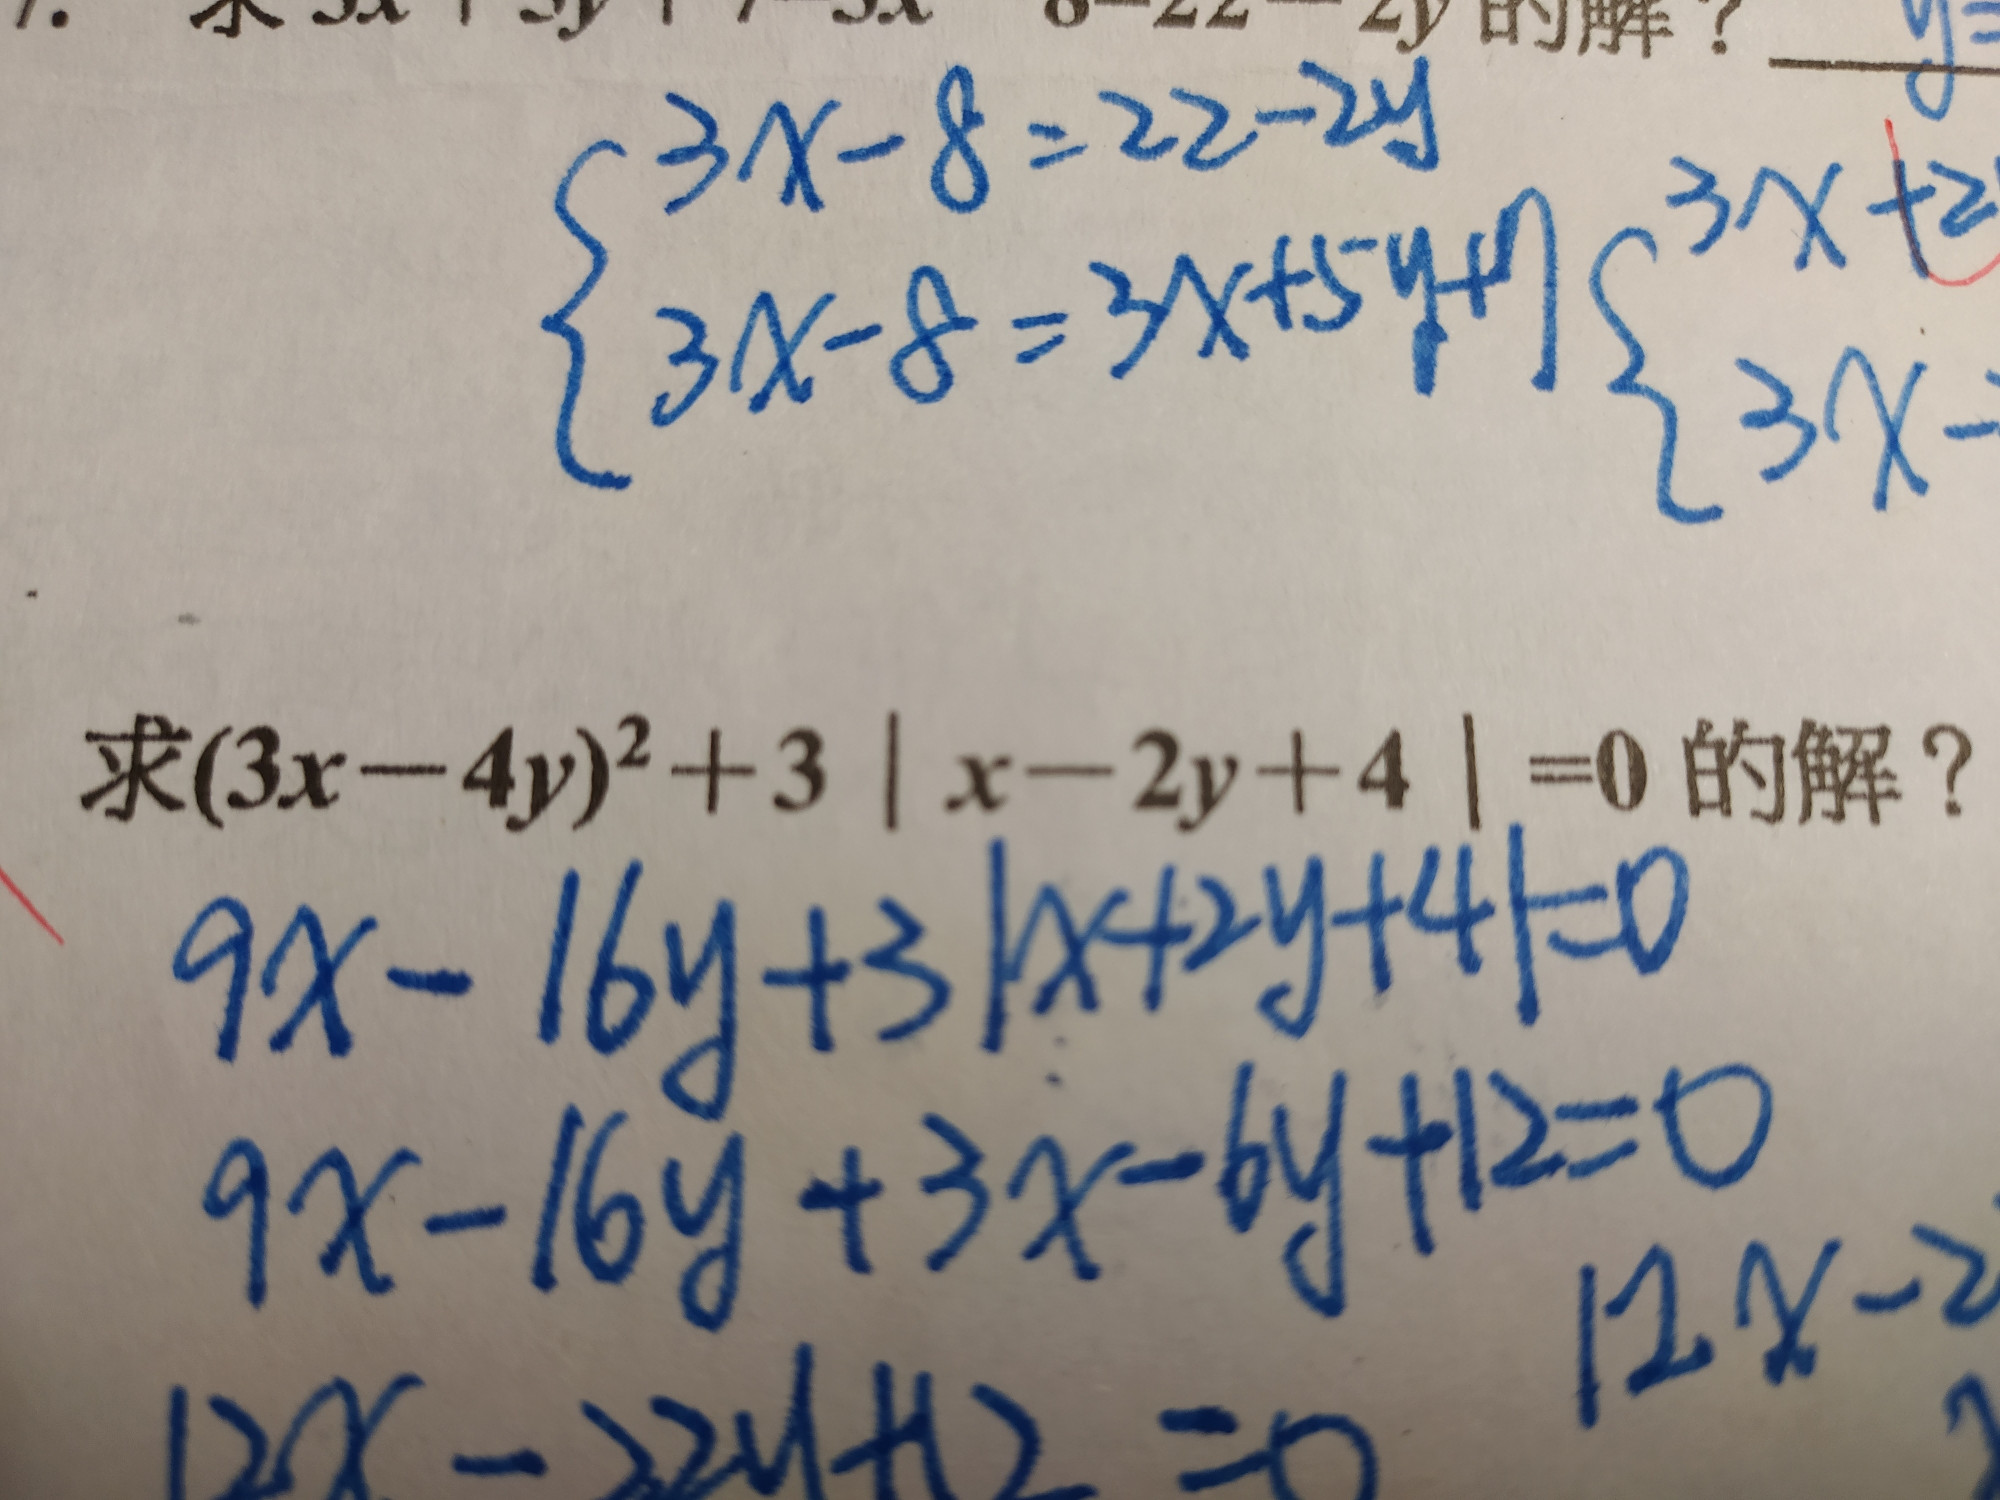 7. 求 3x+5y+7=3x-8=22-2y 的解? y=
3x-8=22-2y
3x-8=3x+5y+7
3x+2
3x-
求(3x-4y)²+3|x-2y+4|=0 的解?
9x-16y+3|x+2y+4|=0
9x-16y+3x-6y+12=0
12x-2
12x-22y+12=0